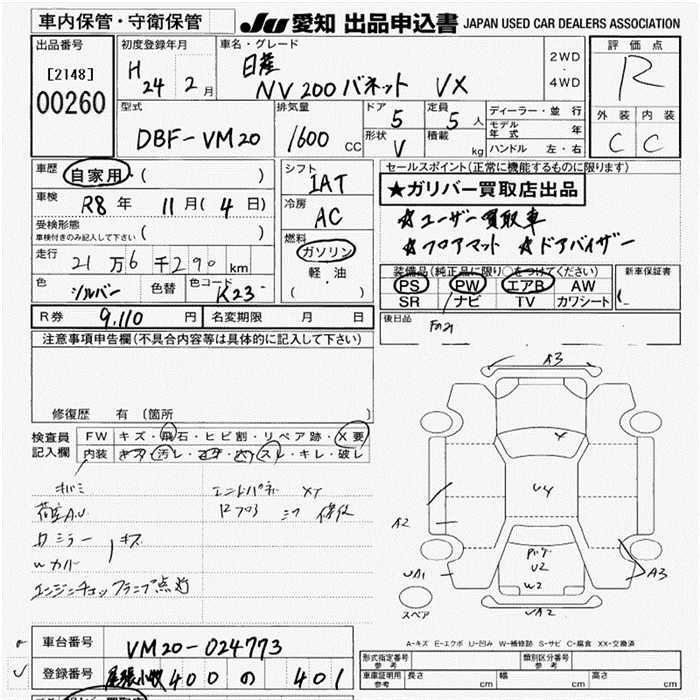 車内保管・守衛保管
JU 愛知 出品申込書 JAPAN USED CAR DEALERS ASSOCIATION
出品番号
[2148]
00260
初度登録年月
H 24 2月
車名・グレード
日産
NV200バネット VX
2WD
・
4WD
評価点
R
外装 内装
C C
型式
DBF-VM20
排気量
1600 CC
ドア 5
形状 V
定員 5 人
積載 kg
ディーラー・並行
モデル年式 年
ハンドル 左・右
車歴 自家用・( )
車検 R8年 11月(4日)
受検形態
車検付きのみ記入して下さい ( )
走行 21万6千290km
色 シルバー 色替 色コード K23
シフト
IAT
冷房
AC
燃料
ガソリン
軽・油
( )
セールスポイント(正常に機能するものに限ります)
★ガリバー買取店出品
☆ユーザー買取車
☆フロアマット ☆ドアバイザー
装備品(純正品に限り○をつけてください)
PS PW エアB AW
SR ナビ TV カワシート
新車保証書
R券 9,110 円 名変期限 月 日
後日品
注意事項申告欄(不具合内容等は具体的に記入して下さい)
修復歴 有(箇所 )
検査員記入欄
FW キズ・飛石・ヒビ割・リペア跡・X要
内装
キバミ
荷室A.U
ワミラー
Wカバー
キズ
エンジンチェックランプ点灯
エンドパネ XT
修復
A3
U4
A2
U2
W2
A3
スペア
A-キズ E-エクボ U-凹み W-補修跡 S-サビ C-腐食 XX-交換済
車台番号 VM20-024773
登録番号 尾張小牧 400 の 401
形式指定番号 参考
類別区分番号 参考
車庫証明用 参考 長さ cm 幅 cm 高さ cm